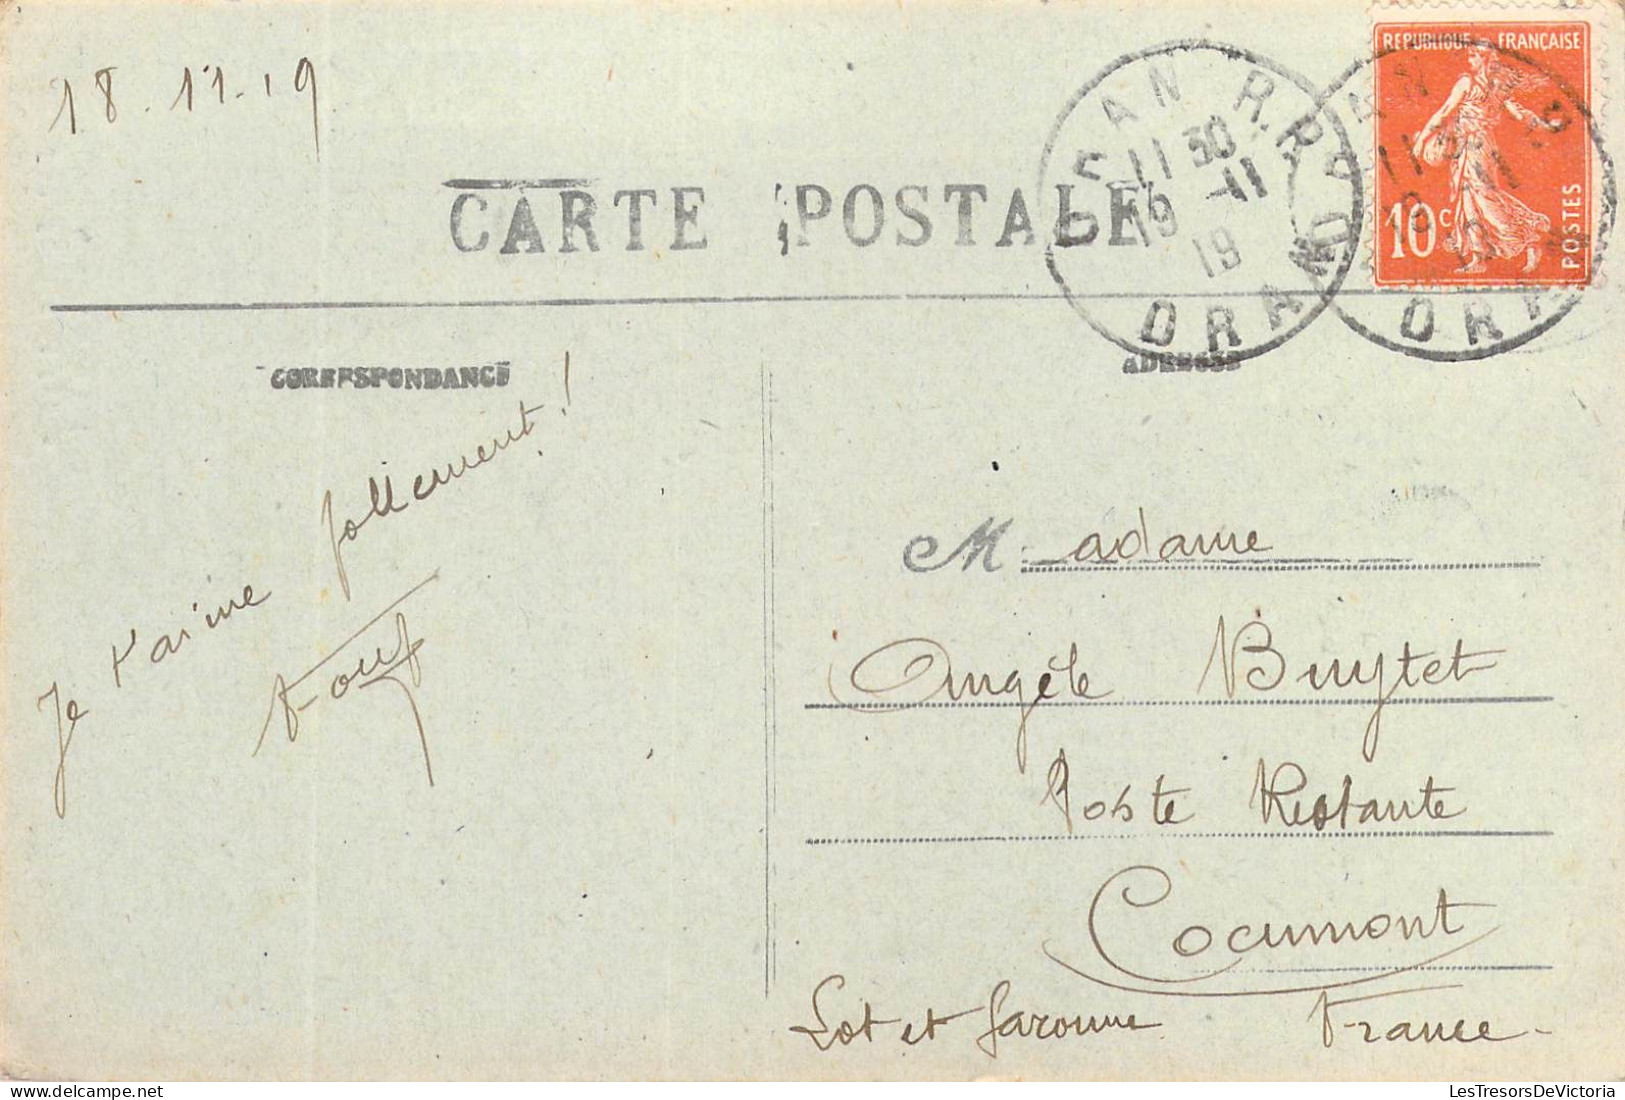 18.11.19
REPUBLIQUE FRANÇAISE
10c
POSTES
ORAN R.P.
11 30
19 -11
19
ORAN
CARTE POSTALE
CORRESPONDANCE
ADRESSE
Je t'aime follement!
Fouf
Madame
Angèle Buytet
Poste Restante
Cocumont
Lot et Garonne France-
LesTresorsDeVictoria